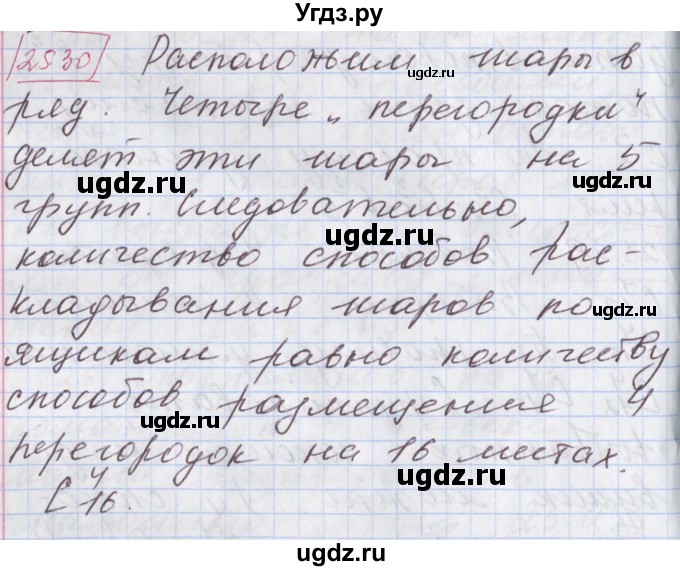 Угдз.ру
2530 Расположим шары в
ugdz.ru
ряд. Четыре „перегородки"
ugdz.ru
делят эти шары на 5
ugdz.ru
ugdz.ru
групп. Следовательно,
ugdz.ru
количество способов рас-
кладывания шаров по
ugdz.ru
ящикам равно количеству
ugdz.ru
способов размещения 4
ugdz.ru
перегородок на 16 местах.
ugdz.ru
C⁴16.
ugdz.ru
ugdz.ru